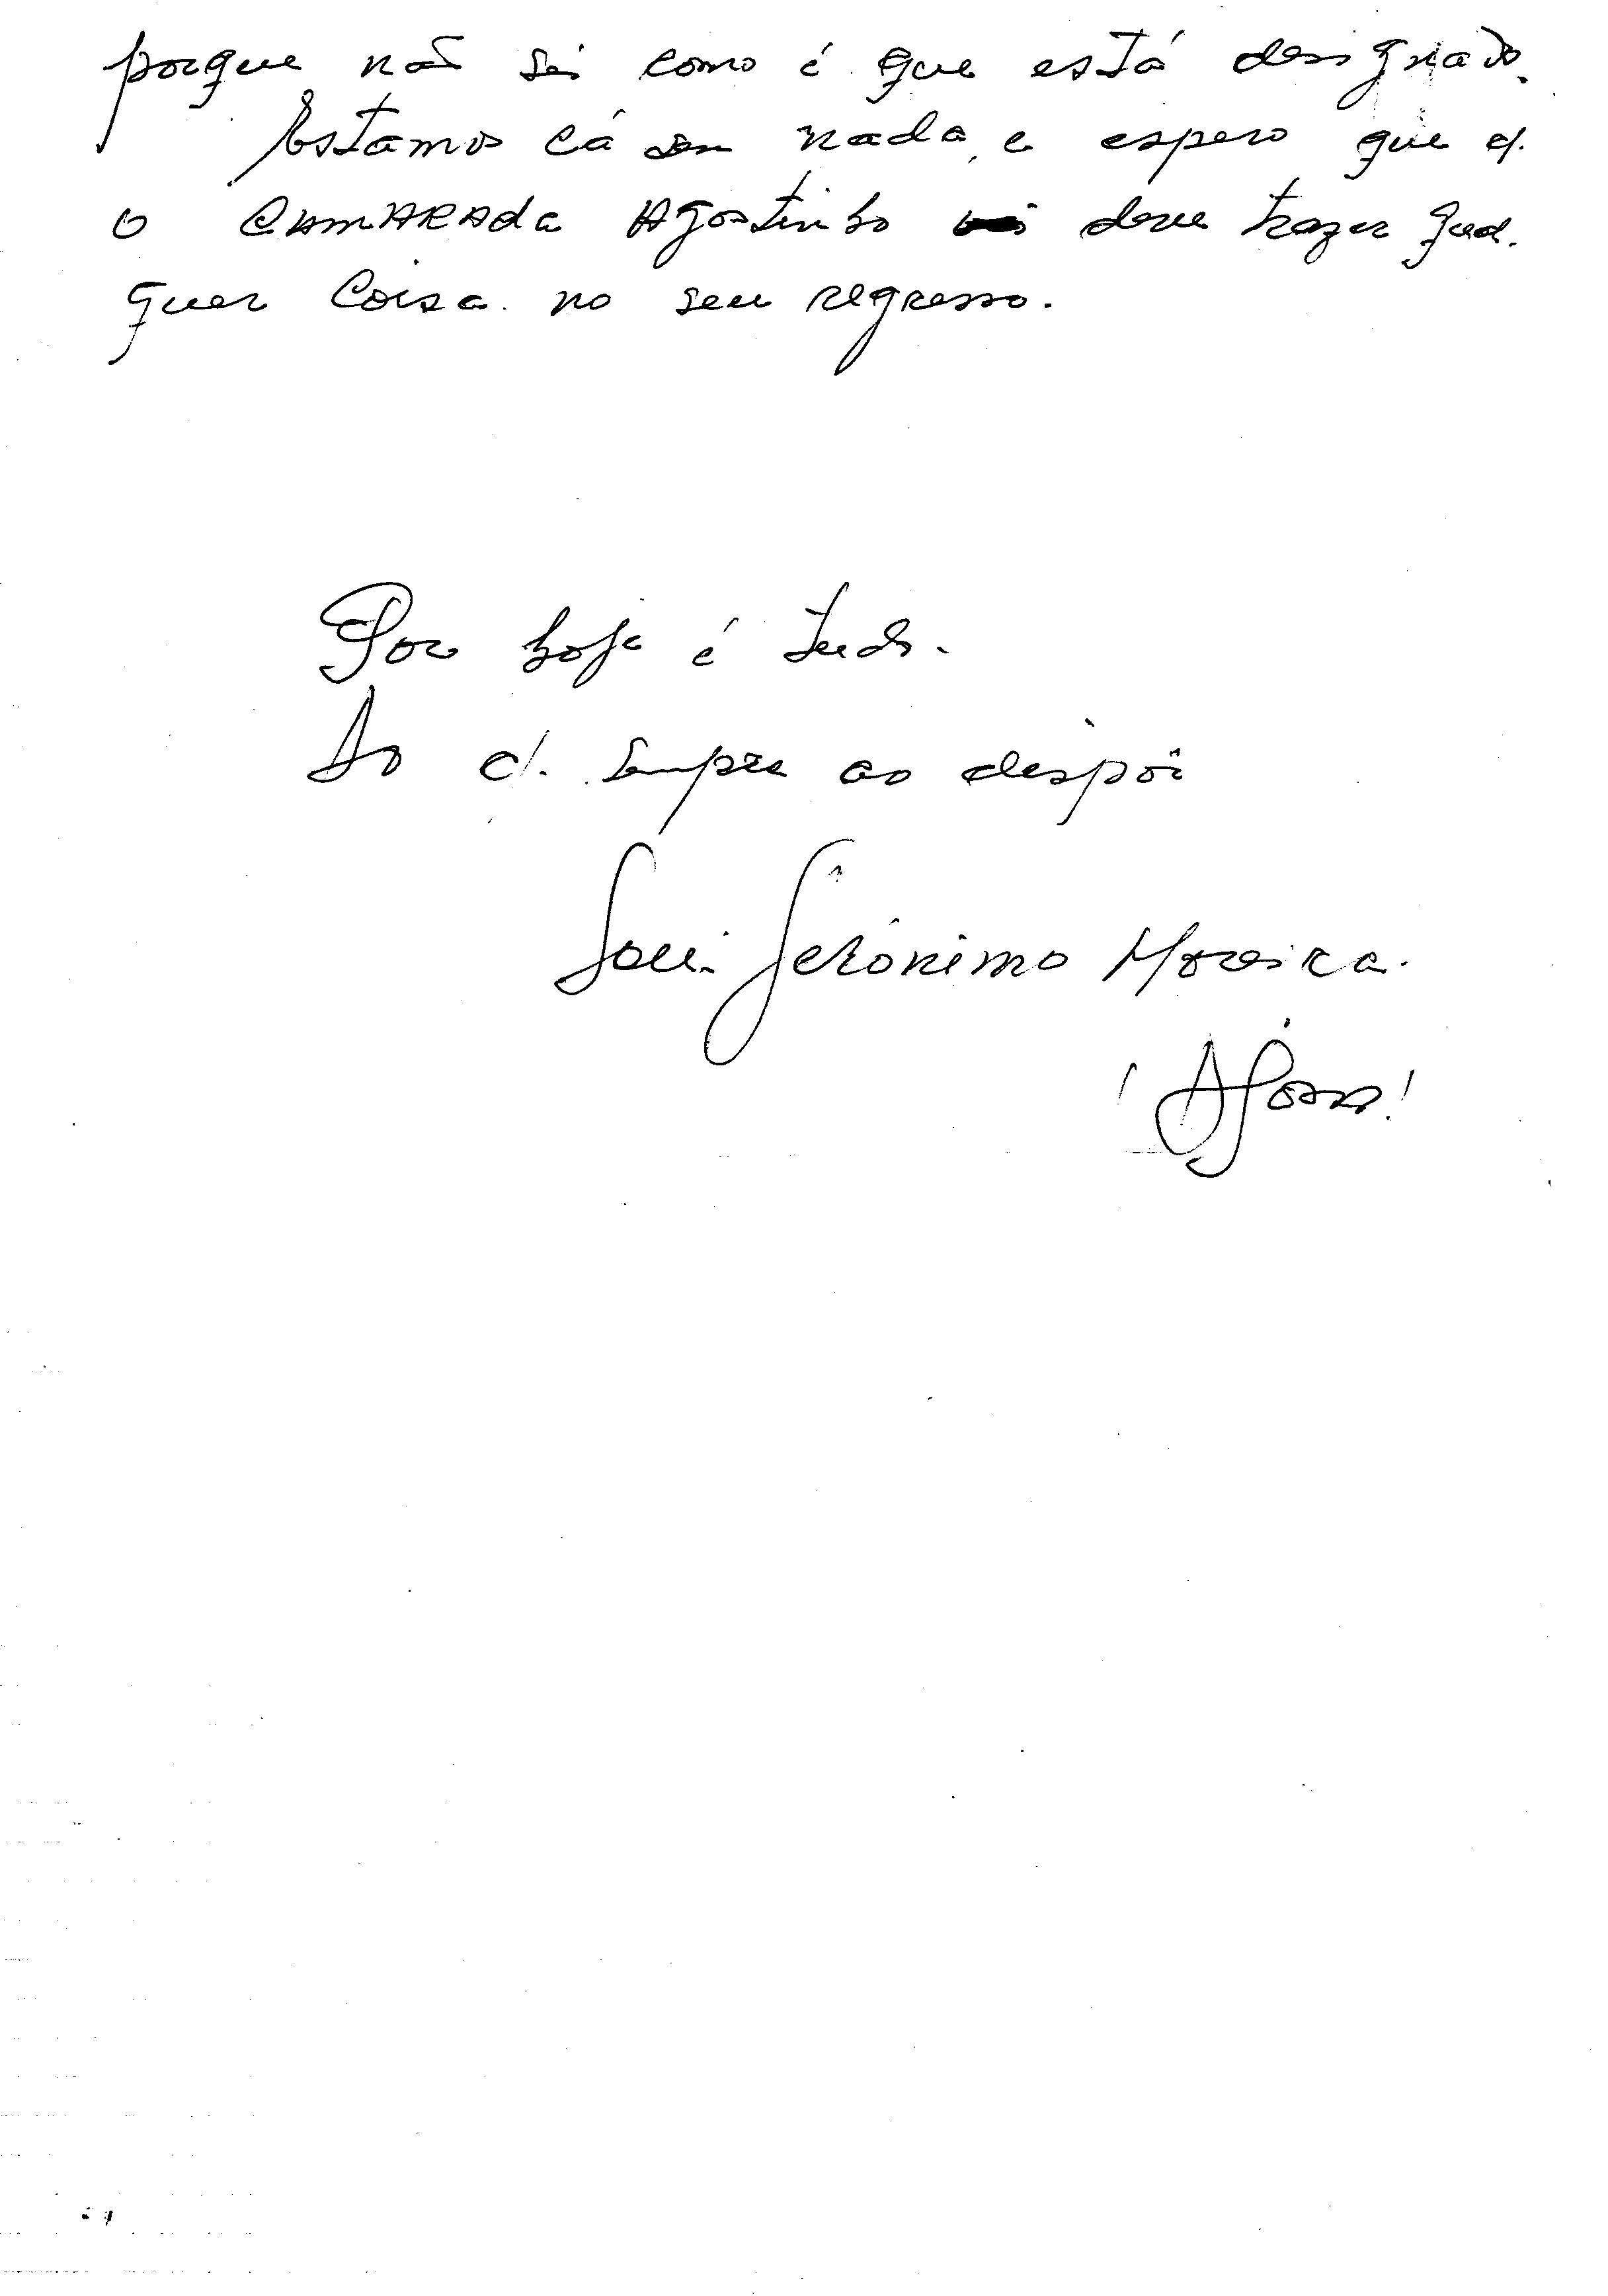 porque não sei como é que está designado.
Estamos cá sem nada, e espero que c/.
o CAMARADA Agostinho deve trazer qual.
quer coisa no seu regresso.
Por hoje é tudo.
Ao c/. sempre ao despôr
José Jerónimo Moreira.